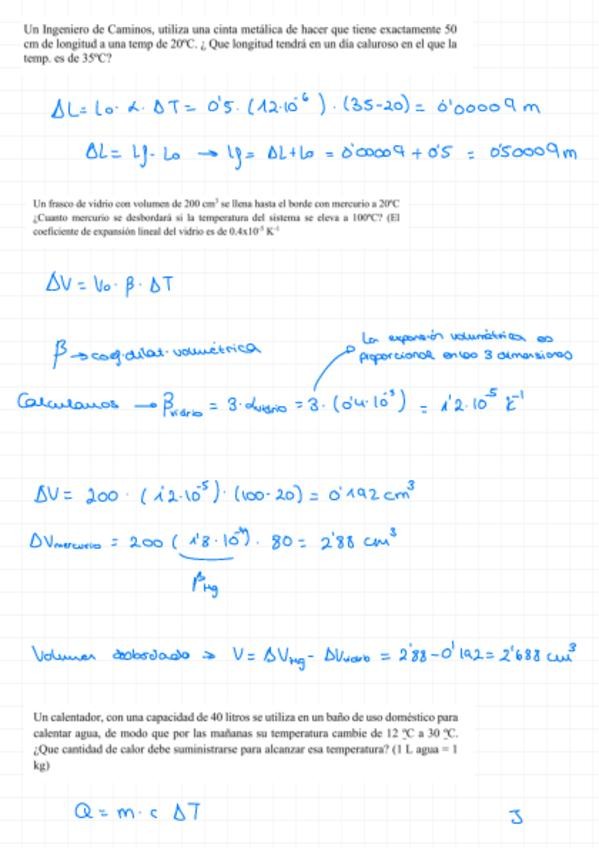 Un Ingeniero de Caminos, utiliza una cinta metálica de hacer que tiene exactamente 50
cm de longitud a una temp de 20ºC. ¿ Que longitud tendrá en un día caluroso en el que la
temp. es de 35ºC?
ΔL = L₀ · α · ΔT = 0'5 · (12·10⁻⁶) · (35-20) = 0'00009 m
ΔL = Lf - L₀ → Lf = ΔL + L₀ = 0'00009 + 0'5 = 0'50009 m
Un frasco de vidrio con volumen de 200 cm³ se llena hasta el borde con mercurio a 20ºC
¿Cuanto mercurio se desbordará si la temperatura del sistema se eleva a 100ºC? (El
coeficiente de expansión lineal del vidrio es de 0.4x10⁻⁵ K⁻¹
ΔV = V₀ · β · ΔT
β → coef. dilat. volumétrica
La expansión volumétrica es
proporcional en las 3 dimensiones
Calculamos → β vidrio = 3·α vidrio = 3 · (0'4·10⁻⁵) = 1'2·10⁻⁵ K⁻¹
ΔV = 200 · (1'2·10⁻⁵) · (100-20) = 0'192 cm³
ΔV mercurio = 200 (1'8·10⁻⁴) · 80 = 2'88 cm³
β Hg
Volumen desbordado → V = ΔV Hg - ΔV vidrio = 2'88 - 0'192 = 2'688 cm³
Un calentador, con una capacidad de 40 litros se utiliza en un baño de uso doméstico para
calentar agua, de modo que por las mañanas su temperatura cambie de 12 ºC a 30 ºC.
¿Que cantidad de calor debe suministrarse para alcanzar esa temperatura? (1 L agua = 1
kg)
Q = m · c ΔT
J